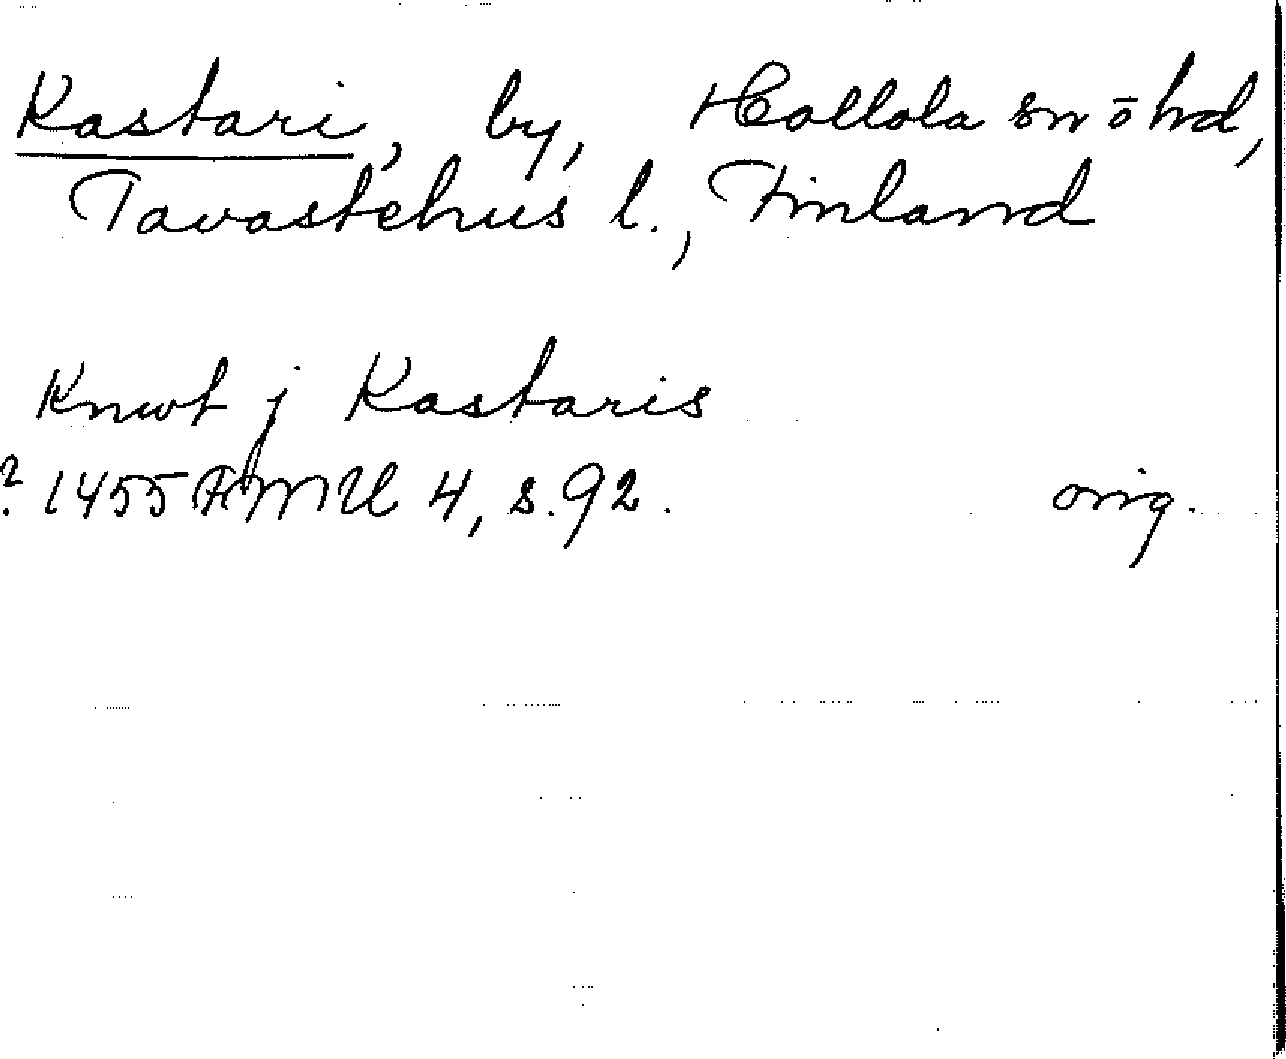 Kastari, by, Hollola sn o hd,
Tavastehus l., Finland
Knwt j Kastaris
? 1455 FMU 4, s. 92. orig.